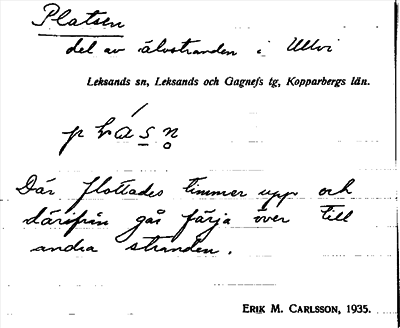 Platsen
del av älvstranden i Ullvi
Leksands sn, Leksands och Gagnefs tg, Kopparbergs län.
Där flottades timmer upp och
därifrån går färja över till
andra stranden.
ERIK M. CARLSSON, 1935.